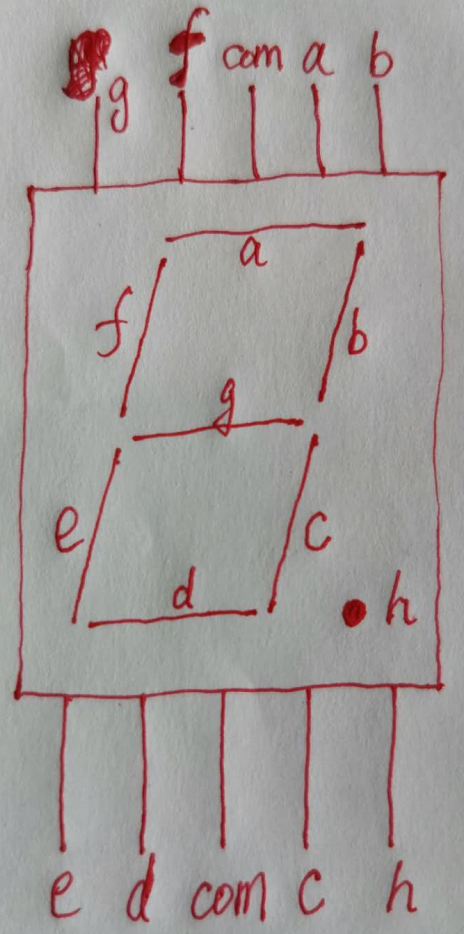 g f com a b
a
f b
g
e c
d h
e d com c h